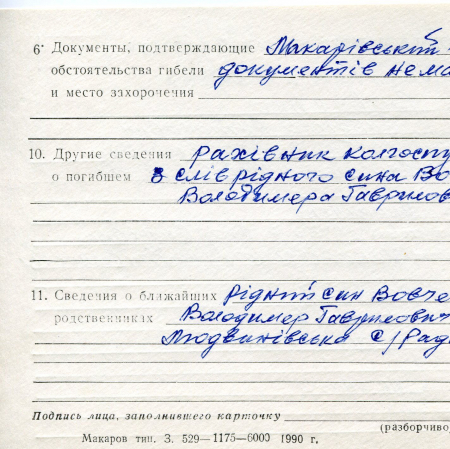 6. Документы, подтверждающие Макарівський
обстоятельства гибели документів нема
и место захоронения
10. Другие сведения рахівник колгоспу
о погибшем з слів рідного сина Во
Володимера Гаврилов
11. Сведения о ближайших рідний син Вовче
родственниках Володимер Гаврилович
Людвинівська с/рад
Подпись лица, заполнившего карточку
(разборчиво)
Макаров тип. З. 529—1175—6000 1990 г.